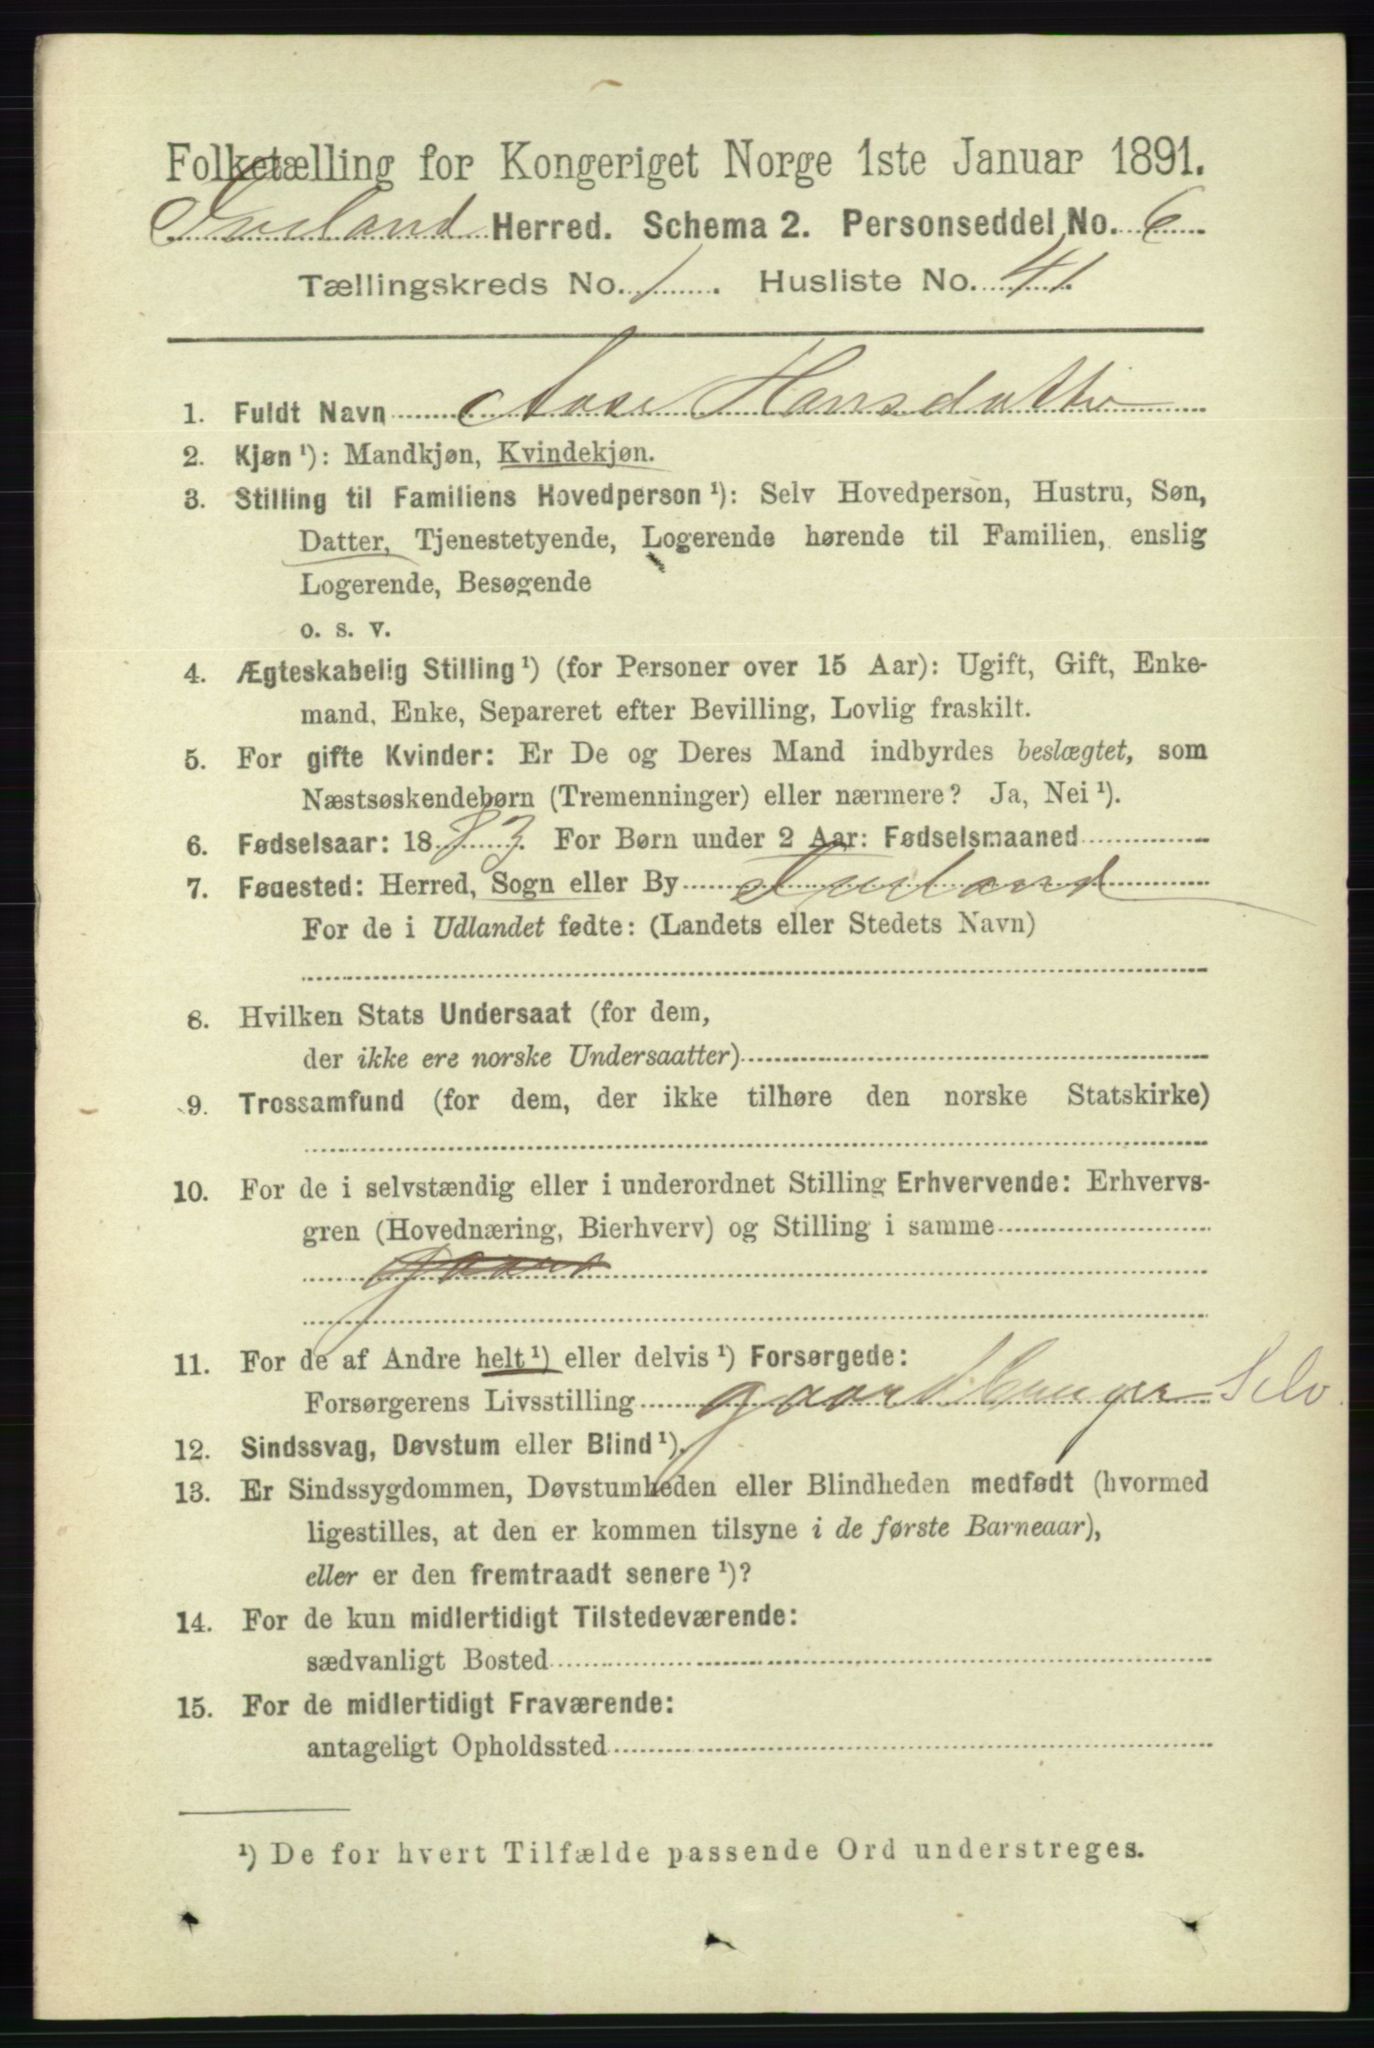 Folketælling for Kongeriget Norge 1ste Januar 1891.
Iveland Herred. Schema 2. Personseddel No. 6
Tællingskreds No. 1. Husliste No. 41.
1. Fuldt Navn Aase Hansdatter
2. Kjøn ¹): Mandkjøn, Kvindekjøn.
3. Stilling til Familiens Hovedperson ¹): Selv Hovedperson, Hustru, Søn,
Datter, Tjenestetyende, Logerende hørende til Familien, enslig
Logerende, Besøgende
o. s. v.
4. Ægteskabelig Stilling ¹) (for Personer over 15 Aar): Ugift, Gift, Enke-
mand, Enke, Separeret efter Bevilling, Lovlig fraskilt.
5. For gifte Kvinder: Er De og Deres Mand indbyrdes beslægtet, som
Næstsøskendebørn (Tremenninger) eller nærmere? Ja, Nei ¹).
6. Fødselsaar: 1883. For Børn under 2 Aar: Fødselsmaaned
7. Fødested: Herred, Sogn eller By Iveland
For de i Udlandet fødte: (Landets eller Stedets Navn)
8. Hvilken Stats Undersaat (for dem,
der ikke ere norske Undersaatter)
9. Trossamfund (for dem, der ikke tilhøre den norske Statskirke)
10. For de i selvstændig eller i underordnet Stilling Erhvervende: Erhvervs-
gren (Hovednæring, Bierhverv) og Stilling i samme
11. For de af Andre helt ¹) eller delvis ¹) Forsørgede:
Forsørgerens Livsstilling gaardbruger Selv
12. Sindssvag, Døvstum eller Blind ¹).
13. Er Sindssygdommen, Døvstumheden eller Blindheden medfødt (hvormed
ligestilles, at den er kommen tilsyne i de første Barneaar),
eller er den fremtraadt senere ¹)?
14. For de kun midlertidigt Tilstedeværende:
sædvanligt Bosted
15. For de midlertidigt Fraværende:
antageligt Opholdssted
¹) De for hvert Tilfælde passende Ord understreges.